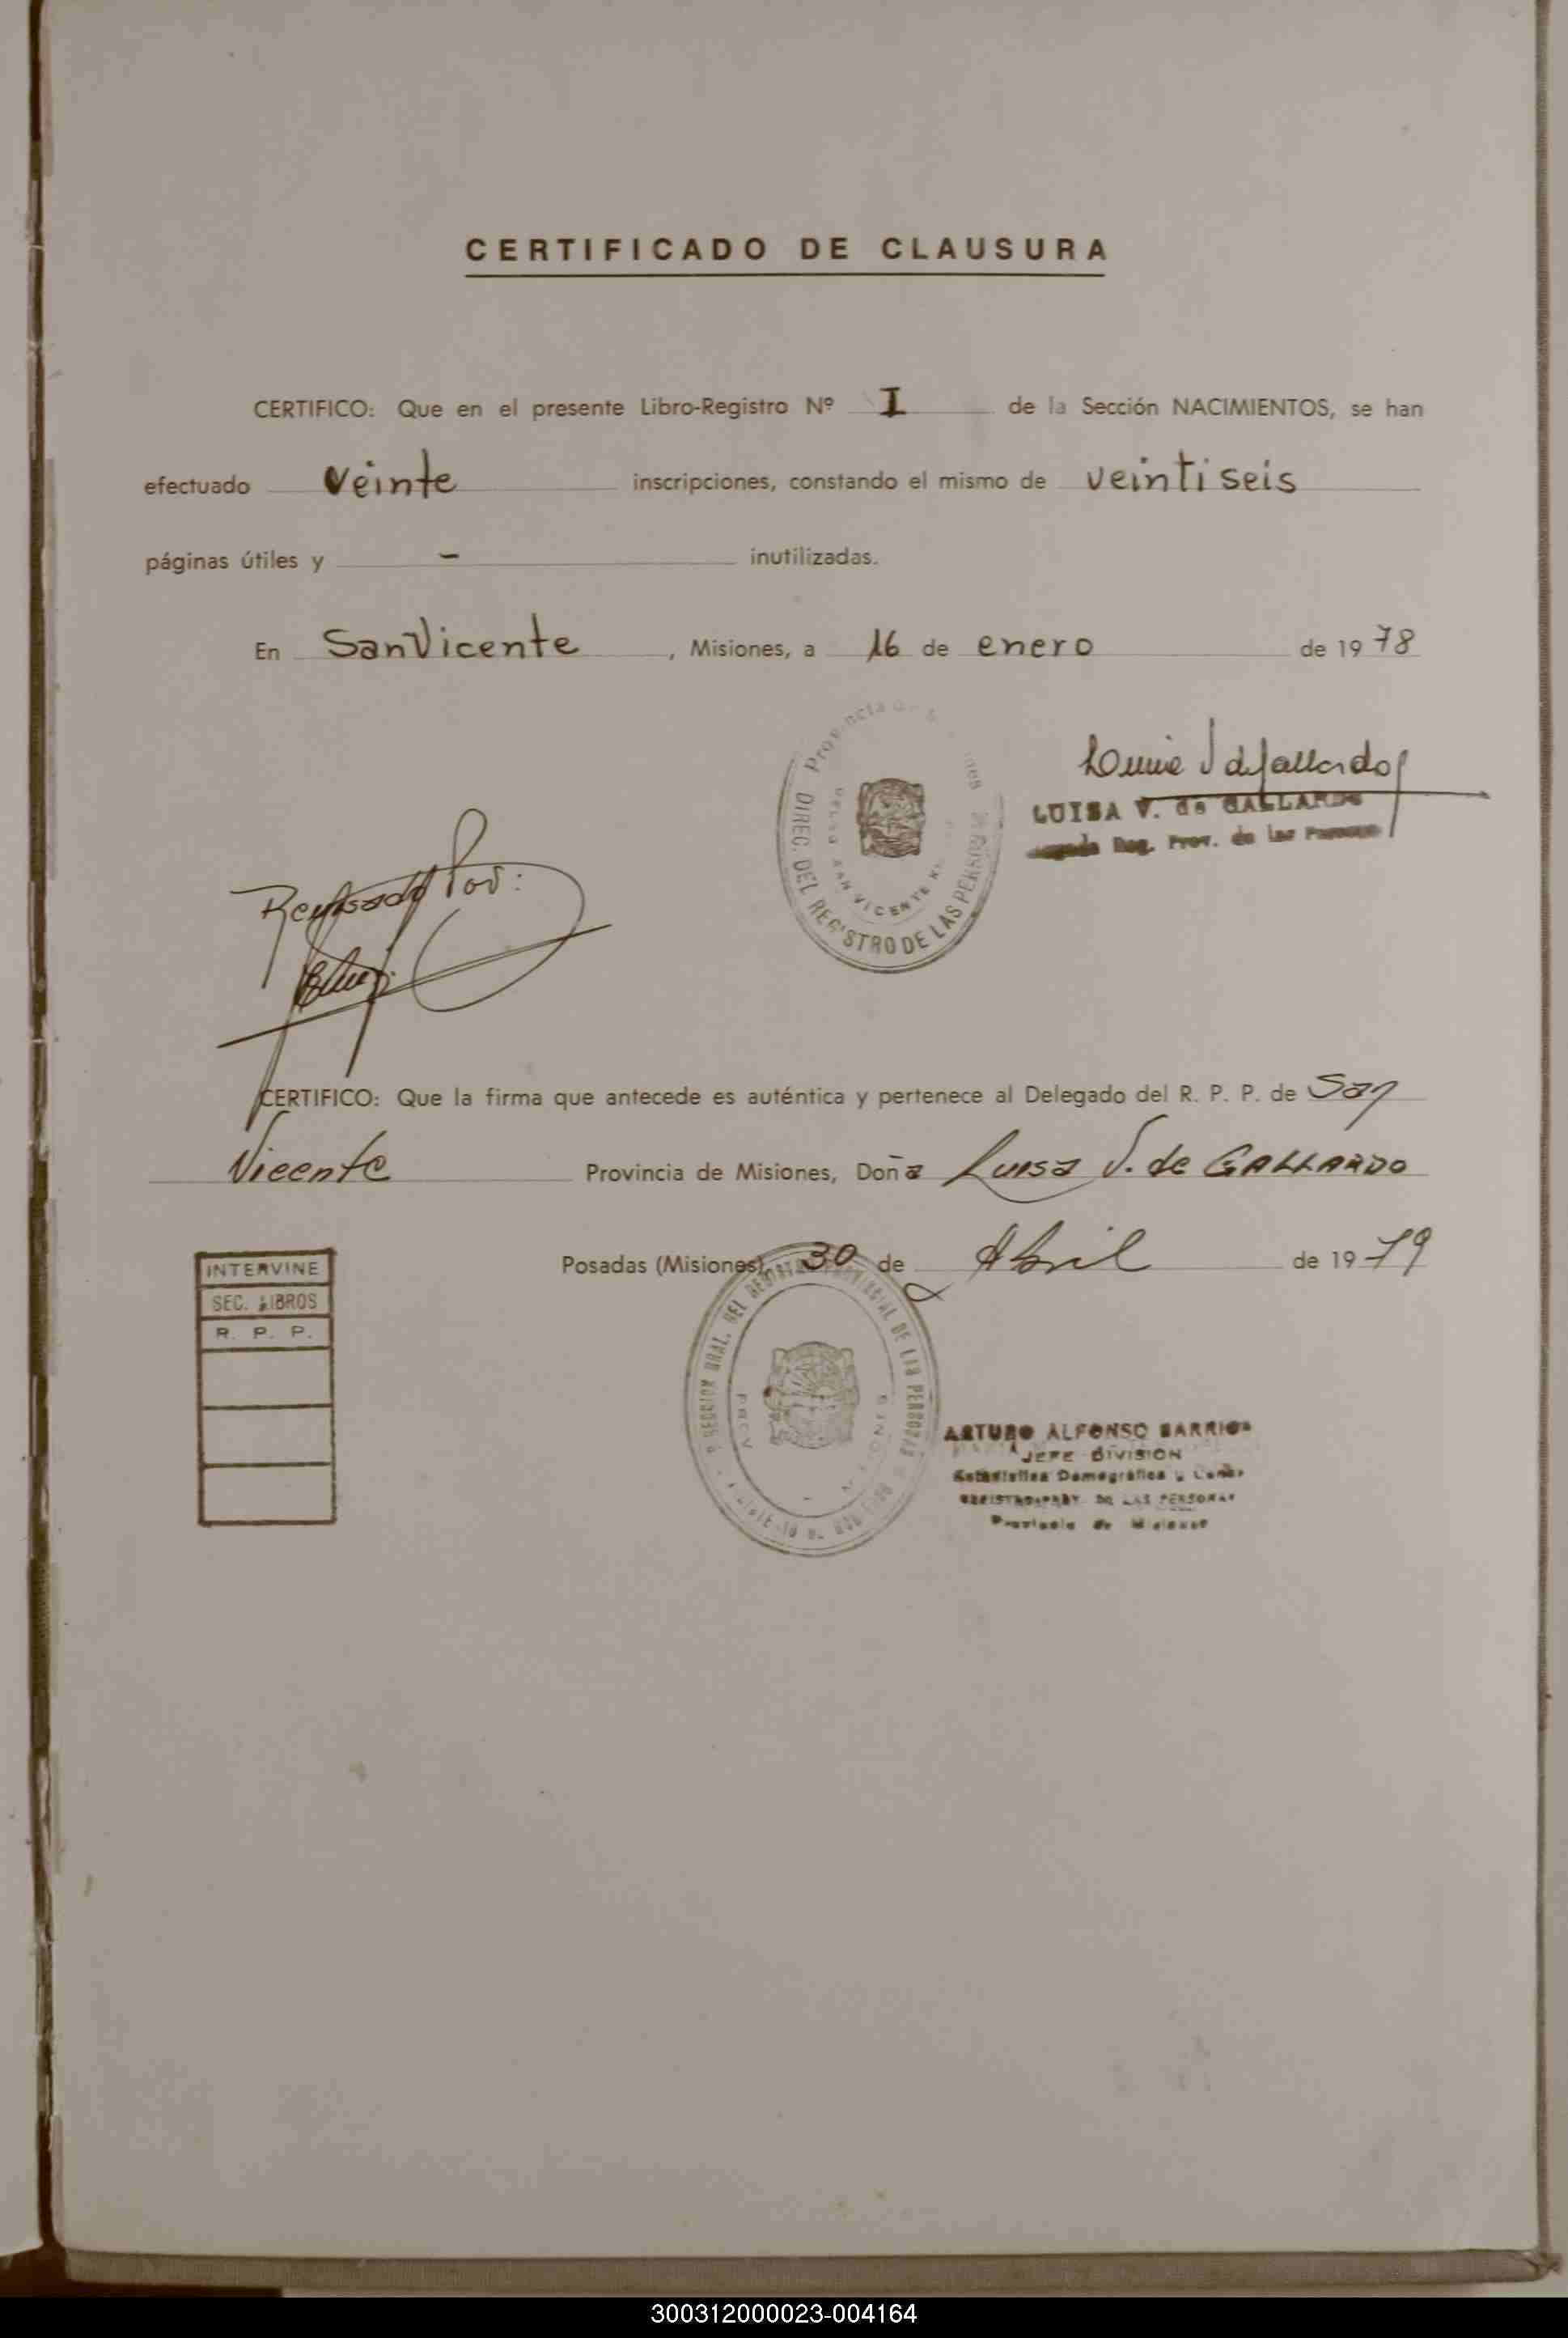 CERTIFICADO DE CLAUSURA
CERTIFICO: Que en el presente Libro-Registro Nº I de la Sección NACIMIENTOS, se han
efectuado veinte inscripciones, constando el mismo de veintiseis
páginas útiles y - inutilizadas.
En San Vicente, Misiones, a 16 de enero de 1978
LUISA V. de GALLARDO
Reg. Prov. de las Personas
DIREC. DEL REGISTRO DE LAS PERSONAS
SAN VICENTE
Revisado Por:
CERTIFICO: Que la firma que antecede es auténtica y pertenece al Delegado del R. P. P. de San
Vicente Provincia de Misiones, Doña Luisa V. de GALLARDO
Posadas (Misiones), 30 de Abril de 1979
INTERVINE
SEC. LIBROS
R. P. P.
ARTURO ALFONSO BARRIOS
JEFE DIVISION
Estadística Demográfica y
DE LAS PERSONAS
Provincia de Misiones
300312000023-004164